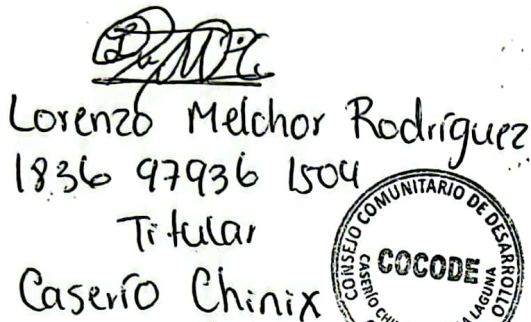 Lorenzo Melchor Rodríguez
1836 97936 1504
Titular
Caserío Chinix
CONSEJO COMUNITARIO DE DESARROLLO
COCODE
CASERÍO
LAGUNA